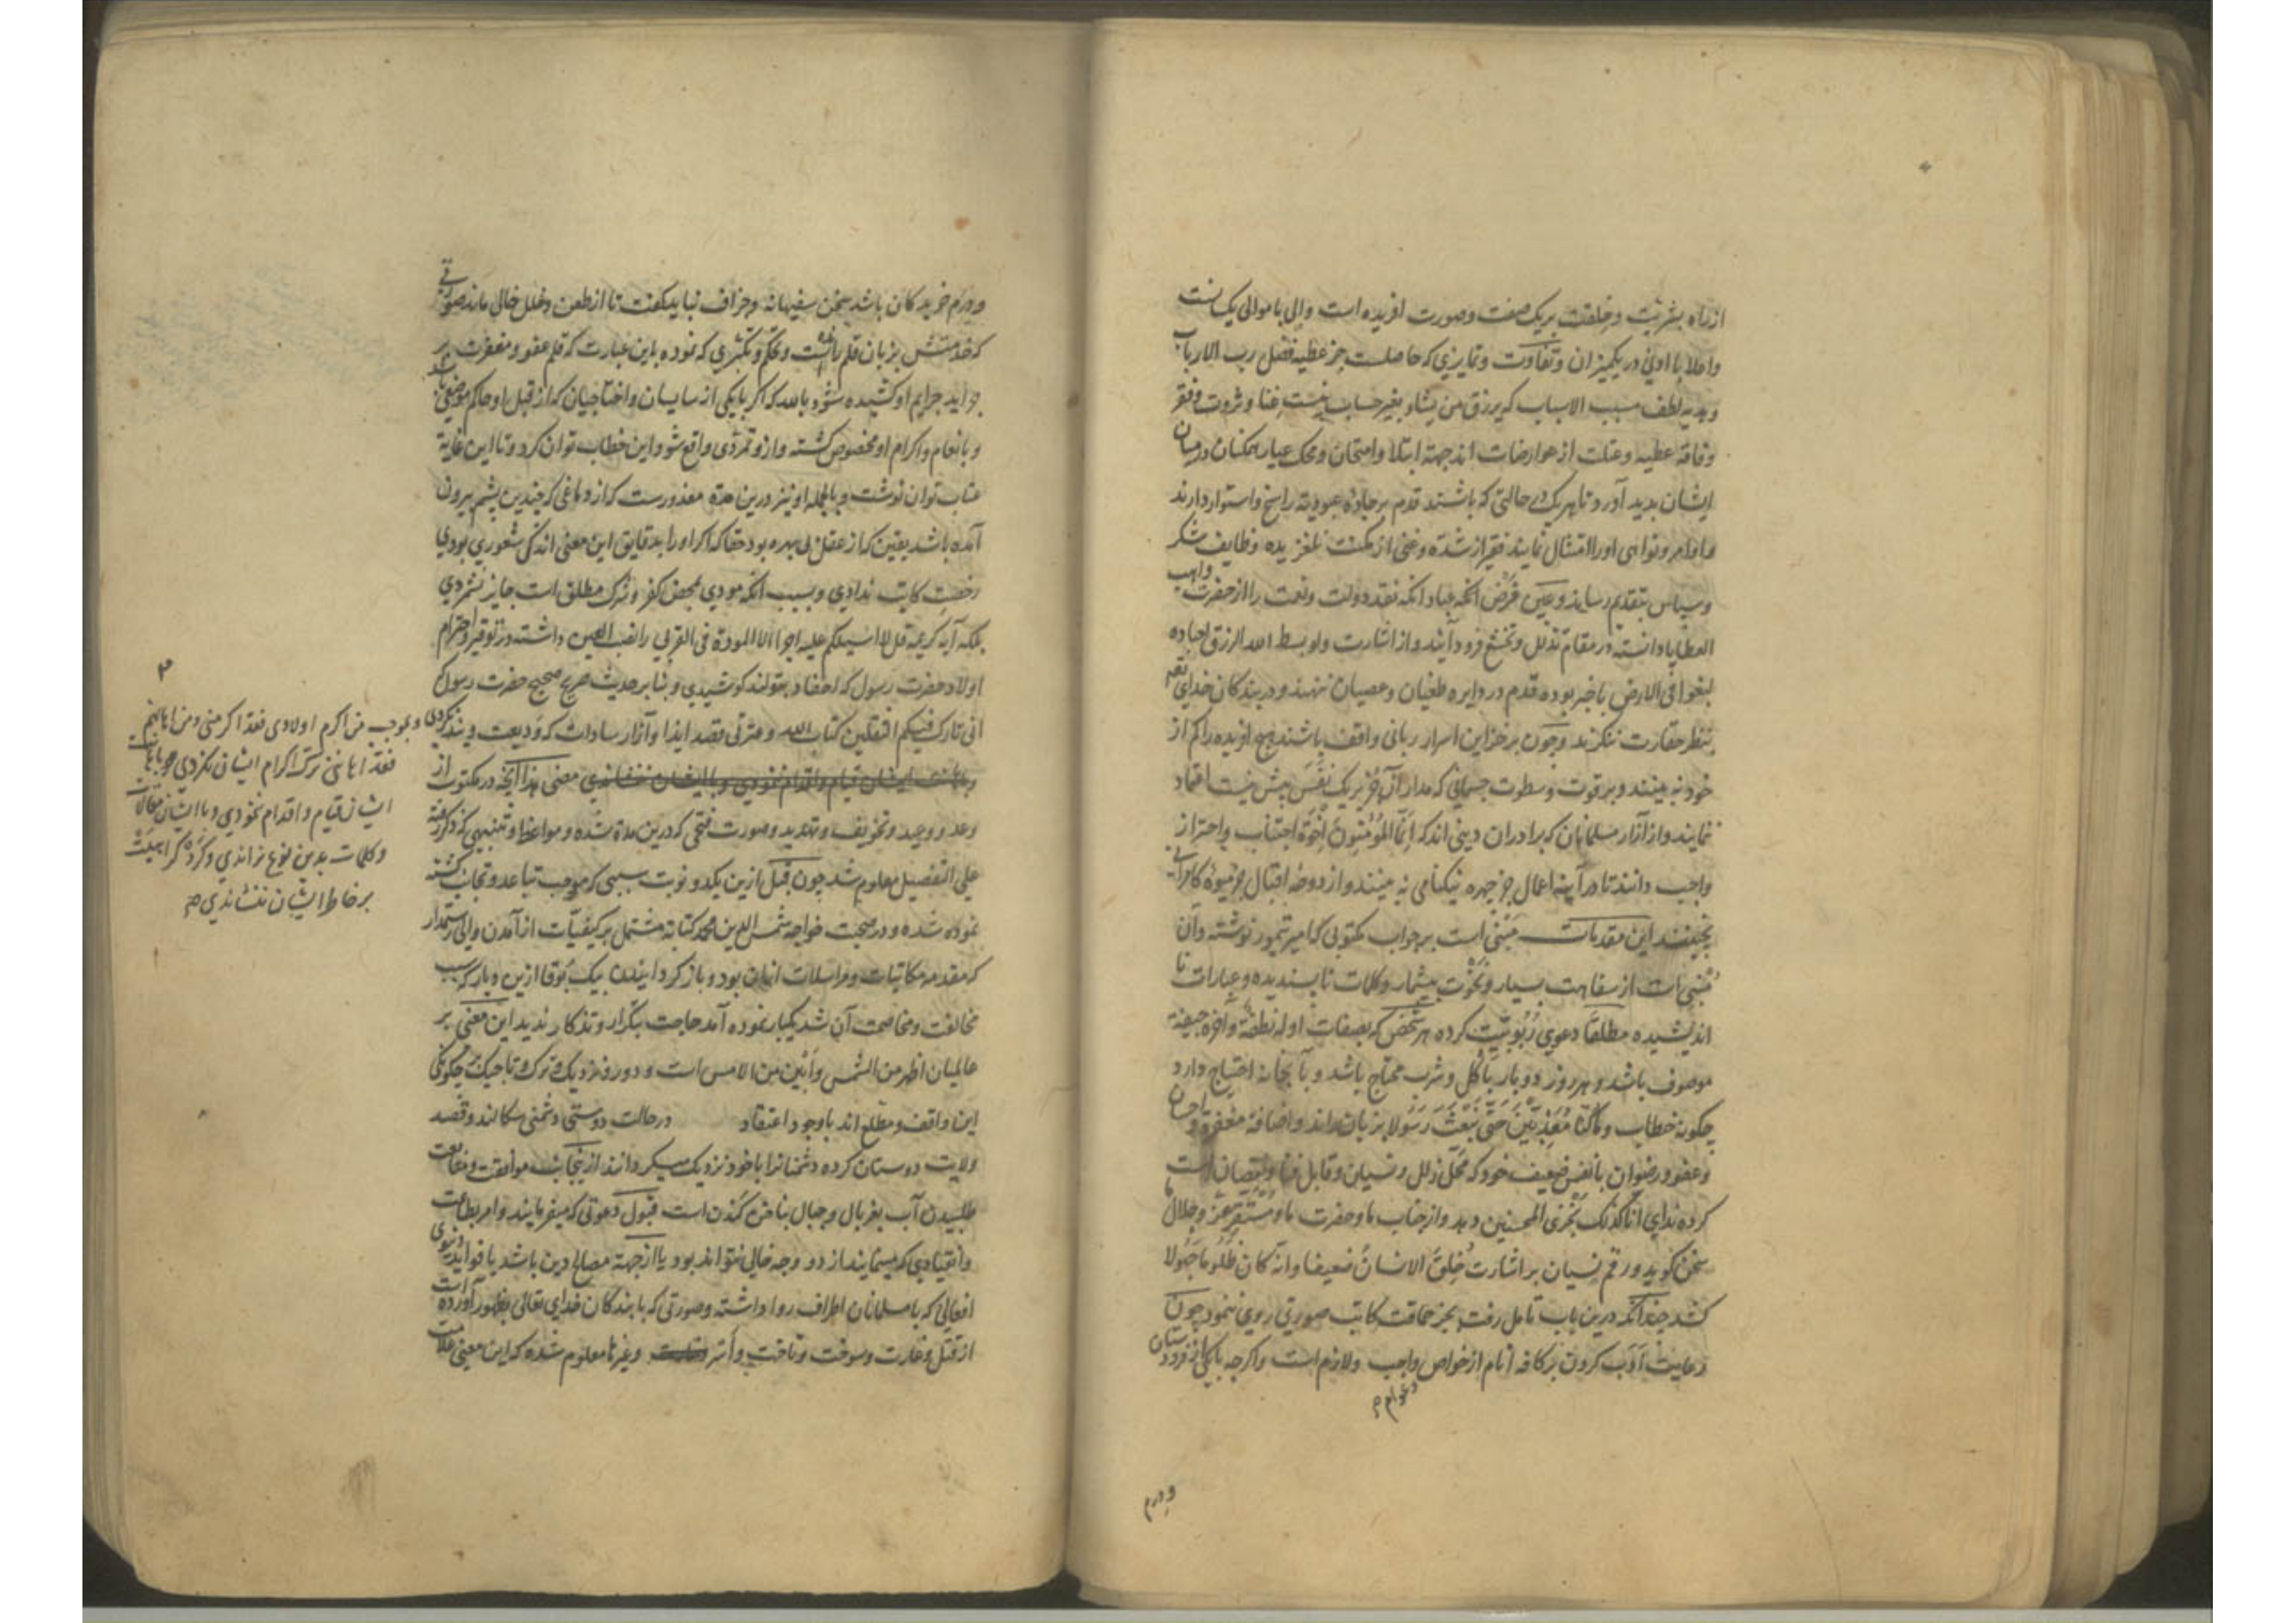 از راه بشریت و خلقت بر یک صفت و صورت افریده است والی با موالی یک نسبت
واعلا با ادنی در یکمیزان وتفاوت وتمایزی که حاصلست جز عطیه فضل رب الارباب
وهدیه لطف مسبب الاسباب که یرزق من یشاء بغیر حساب نیست غنا وثروت وفقر
وفاقه عطیه وعلت از عوارضات اند جهة ابتلا وامتحان ومحک عیار ممکنان در میان
ایشان بدید آورد تا هر یک در حالتی که باشند قدم بر جاده عبودیة راسخ واستوار دارند
واوامر ونواهی اورا امتثال نمایند فقیر از شدة وغنی از مکنت نلغزیده وظایف شکر
وسپاس بتقدیم رسانند وعین فرض انکه عباد انکه نقد دولت ونعمت را از حضرت واهب
العطایا دانسته در مقام تذلل وتخشع فرود آیند واز اشارت ولو بسط الله الرزق لعباده
لبغوا فی الارض باخبر بوده قدم در دایره طغیان وعصیان ننهند ودر بندکان خدای تعم
بنظر حقارت ننکرند وچون بر خزاین اسرار ربانی واقف باشند هیچ افریده را کم از
خود نه بینند وبر قوت وسطوت جسمانی که مدار آن جز بر یک نفس بیش نیست اعتماد
ننمایند واز آزار مسلمانان که برادران دینی اند که اِنّما المُؤمنُونَ اِخوَة اجتناب واحتراز
واجب دانند تا در آینه اعمال جز چهره نیکنامی نه بینند واز دوحه اقبال جز میوه کامرانی
نچینند این مقدمات مبنی است بر جواب مکتوبی که امیر تیمور نوشته وآن
مُنبی است از سفاهت بسیار ونخوت بیشمار وکلمات نا پسندیده وعبارات نا
اندیشیده مطلقا دعوی رُبُوبیّت کرده هر شخص که بصفات اوله نطفة وآخره جیفة
موصوف باشد وهر روز دو بار باَکل وشرب محتاج باشد وبآبخانه احتیاج دارد
چکونه خطاب وماکنّا مُعَذّبینَ حَتّی نَبعَثَ رَسُولا بر زبان راند واضافة مغفرة واحسان
وعفو ورضوان بانفس ضعیف خود که محلّ زلل ونسیان وقابل فنا ونقصان است
کرده ندای انا کذلک نجزی المحسنین دهد واز جناب ما وحضرت ما ومُستَقرّ عزّ وجلال ما
سخن کوید ورقم نسیان بر اشارت خُلقَ الانسانُ ضعیفا وانّه کان ظلُوما جَهُولا
کشد چندانکه درین باب تامل رفت بجز حماقت کاتب صورتی روی ننمود چون
رعایت آدَب کردن بر کافه اَنام از خواص واجب ولازم است واکرچه با یکی از فرودستان
وعوام صح
ودرم
ودرم خریدکان باشد سخن سفیهانه وجزاف نباید کفت تا از طعن وخلل خالی ماند صورتی
که خدمتش بزبان قلم رانده است وتحکّم وتکبّری که نموده باین عبارت که قلم عفو ومغفرت بر
جراید جرایم او کشیده شود بالله که اکر با یکی از سایسان واختاجیان که از قبل او حاکم موضعی باشد
وبانعام واکرام او مخصوص کشته وازو تمرّدی واقع شود این خطاب توان کرد وتا این غایة
عتاب توان نوشت وبالجمله او نیز درین مدة معذورست که از دماغی که چندین پشم بیرون
آمده باشد یقین که از عقل بی بهره بود حقا که اکر اورا بدقایق این معنی اندکی شعوری بودی
رخصت کتابت ندادی وبسبب انکه مودی بمحض کفر وشرک مطلق است جایز نشمردی
بلکه آیه کریمه قل لا اسیلکم علیه اجرا الا المودة فی القربی را نصب العین داشته در توقیر واحترام
اولاد حضرت رسول که احفاد بتولند کوشیدی وبنا بر حدیث صریح صحیح حضرت رسول که
انی تارک فیکم الثقلین کتاب الله وعترتی قصد ایذا وآزار سادات که ودیعت ویند نکردی
معنی هذا آنچه در مکتوب از
وعد ووعید وتخویف وتهدید وصورت فتحی که درین مدة شده ومواعظ وتنبیهی که ذکر رفته
علی التفصیل معلوم شد چون قبل ازین یکدو نوبت سببی که موجب تباعد وتجانب کشته
نموده شده ودر صحبت خواجه شمس الدین محمد کتابة مشتمل بر کیفیّات از آمدن والی رستمدار
که مقدمه مکاتبات ومراسلات انان بود وباز کردانیدن بیک بُوقا ازین دیار که سبب
مخالفت ومخاصمت آن شد یکبار نموده آمد حاجت بتکرار وتذکار ندید این معنی بر
عالمیان اظهر من الشمس واَبین من الامس است ودور ونزدیک وترک وتاجیک بر چکونکی
این واقف ومطلع اند باوجود اعتقاد در حالت دوستی دشمنی سکالند وقصد
ولایت دوستان کرده دشمنانرا باخود نزدیک میکردانند ازینجانب موافقت ومتابعت
طلبیدن آب بغربال وجبال بناخن کندن است قبول دعوتی که میفرمایند وامر بطاعت
وانقیادی که مینمایند از دو وجه خالی نتواند بود یا از جهة مصالح دین باشد یا فواید دنیوی
افعالی که با مسلمانان اطراف روا داشته وصورتی که با بندکان خدای تعالی بظهور آورده است
از قتل وغارت وسوخت وتاخت واَسر وغیرها معلوم شده که این معنی علامت
وبموجب من اکرم اولادی فقد اکرمنی ومن اهانهم
فقد اهاننی ترک اکرام ایشان نکردی
ایشان قیام واقدام ننمودی وبا ایشان مقالات
وکلمات بدین نوع نراندی وکرد کراهیت
بر خاطر ایشان ننشاندی صح